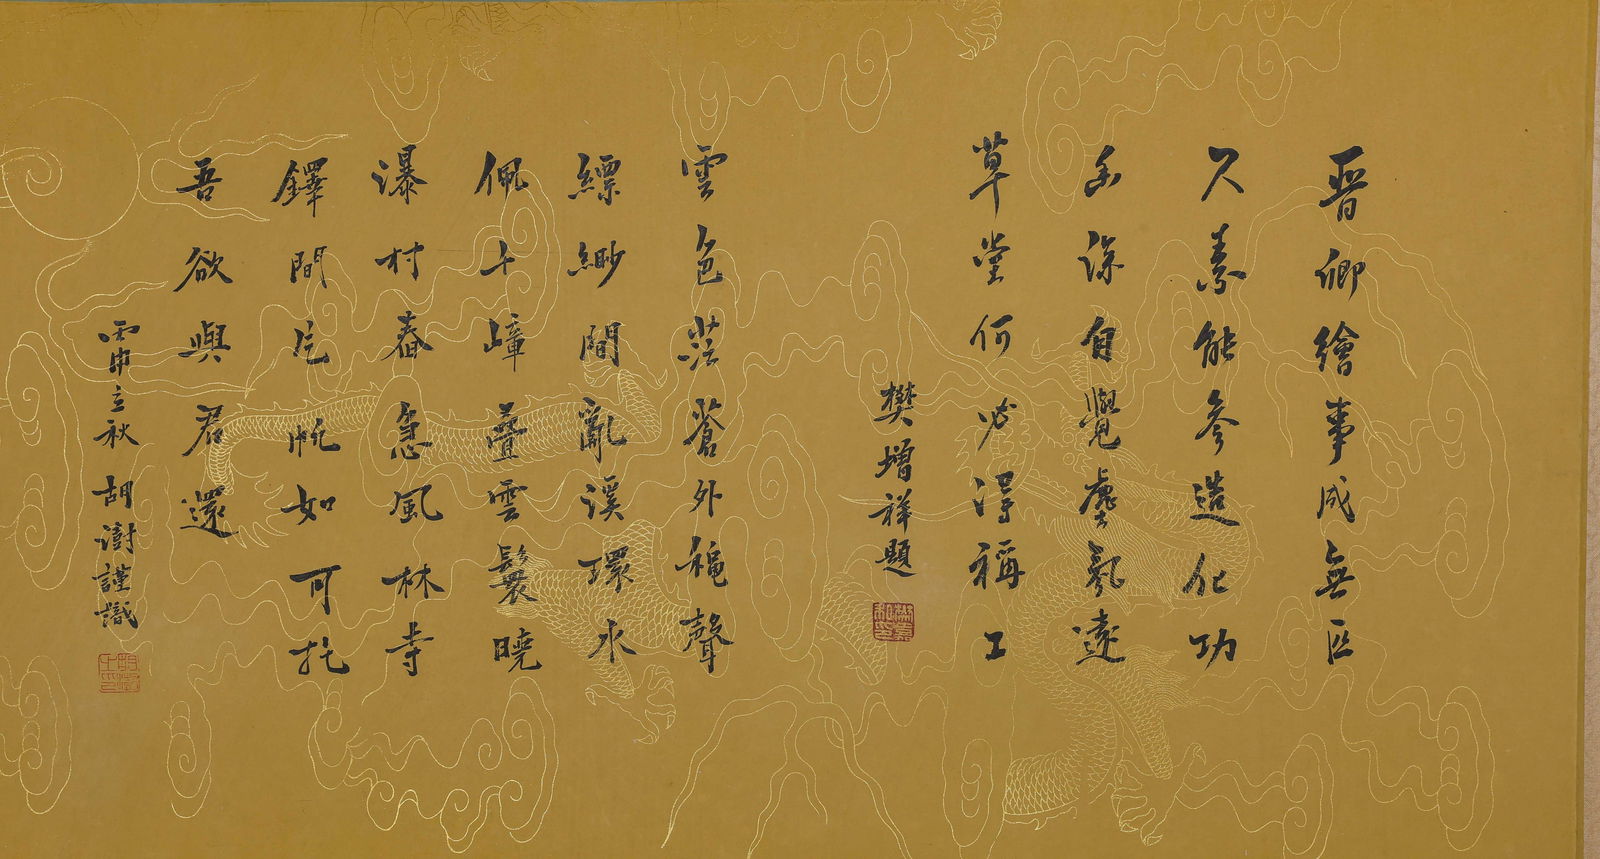 晉卿繪事成無匹
久素能參造化功
幽深自覺塵氣遠
草堂何必得稱工
樊增祥題
雲色茫蒼外穐聲
縹緲間亂溪環水
佩十嶂疊雲鬟曉
瀑村舂急風林寺
鐸間片帆如可托
吾欲與君還
丙申立秋
胡澍謹識